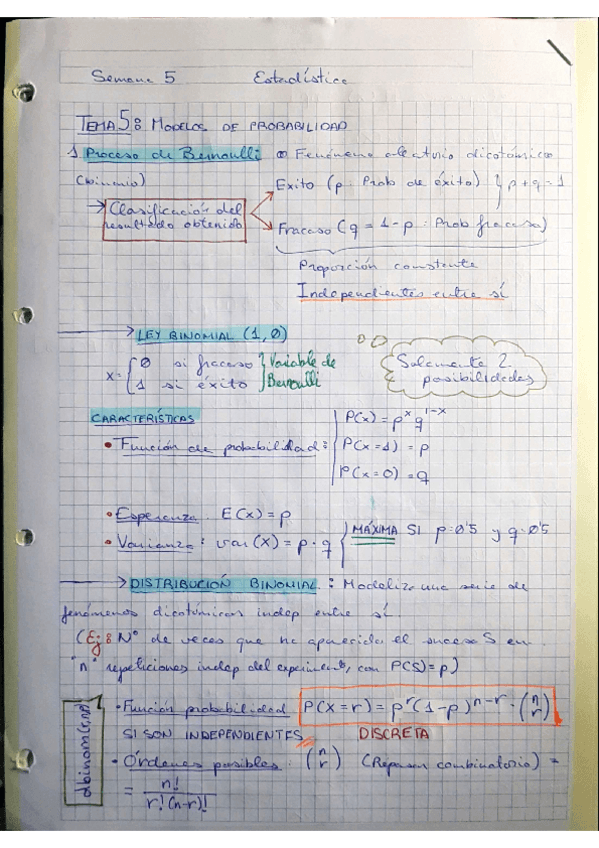 Semana 5 Estadística
TEMA 5: MODELOS DE PROBABILIDAD
1 Proceso de Bernoulli ∞ Fenómeno aleatorio dicotómico
(binomio)
Éxito (p: Prob de éxito) } p+q=1
→ Clasificación del
resultado obtenido
Fracaso (q = 1-p : Prob fracaso)
Proporción constante
Independientes entre sí
→ LEY BINOMIAL (1,0)
x = { 0 si fracaso } Variable de
1 si éxito } Bernoulli
Solamente 2
posibilidades
CARACTERÍSTICAS
• Función de probabilidad:
P(x) = p^x q^1-x
P(x=1) = p
P(x=0) = q
• Esperanza. E(x) = p
• Varianza: var(x) = p·q { MÁXIMA SI p=0'5 y q=0'5
→ DISTRIBUCIÓN BINOMIAL: Modeliza una serie de
fenómenos dicotómicos indep entre sí.
(Ej: Nº de veces que ha aparecido el suceso S en
"n" repeticiones indep del experimento, con P(S)=p)
dbinom(r,n,p)
• Función probabilidad P(X=r) = p^r (1-p)^n-r · (n r)
SI SON INDEPENDIENTES DISCRETA
• Órdenes posibles: (n r) (Repasar combinatoria) =
= n! / r!(n-r)!